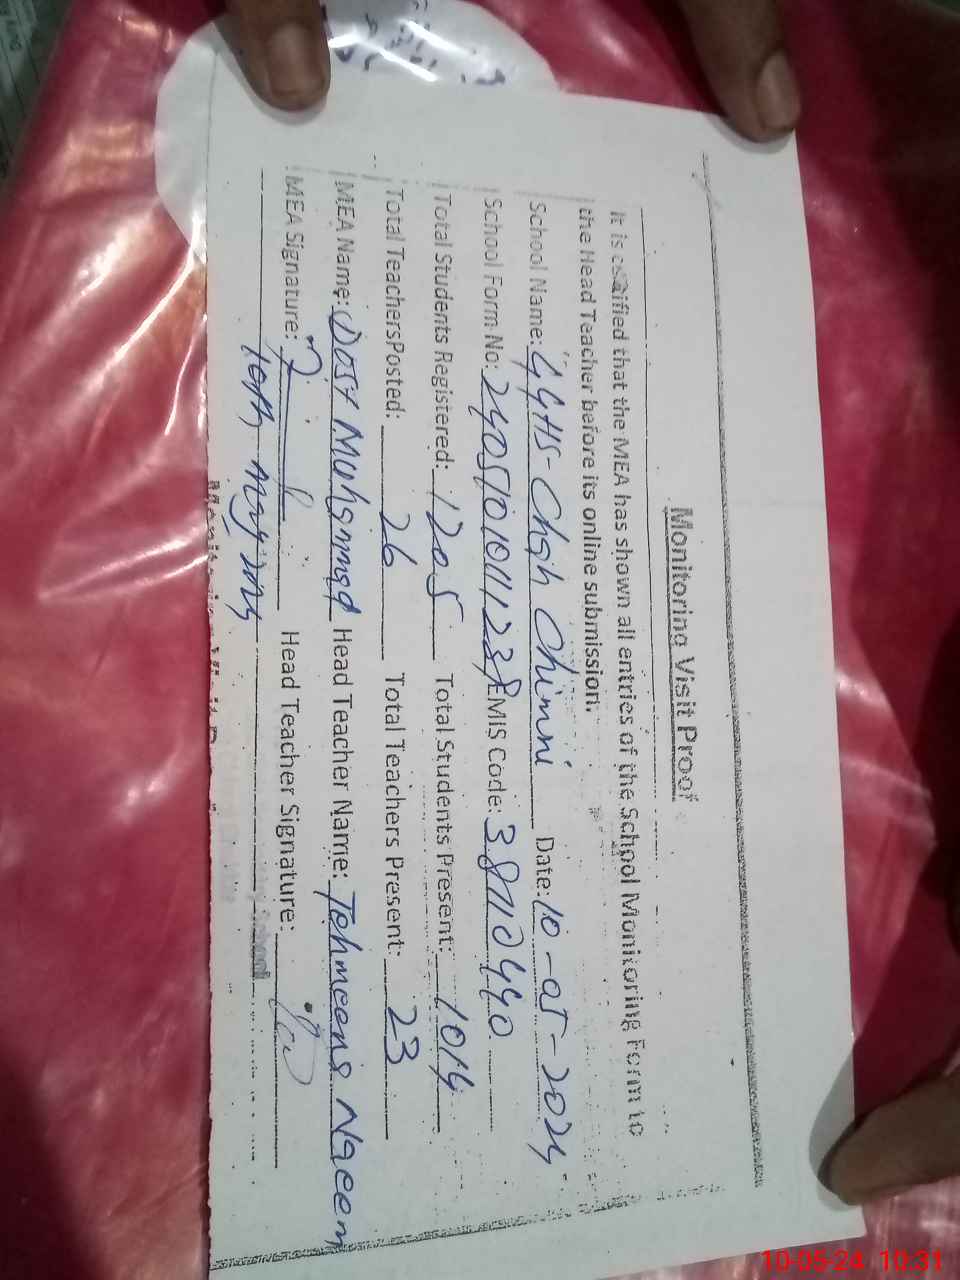 Monitoring Visit Proof
It is certified that the MEA has shown all entries of the School Monitoring Form to
the Head Teacher before its online submission.
School Name: GGHS-Chah Chimni Date: 10-05-2024
School Form No: EMIS Code: 38110440
Total Students Registered: 1205 Total Students Present: 1014
Total TeachersPosted: 26 Total Teachers Present: 23
MEA Name: Dost Muhammad Head Teacher Name: Tehmeena Naeem
MEA Signature: Head Teacher Signature:
10th may 2024
10-05-24 10:31